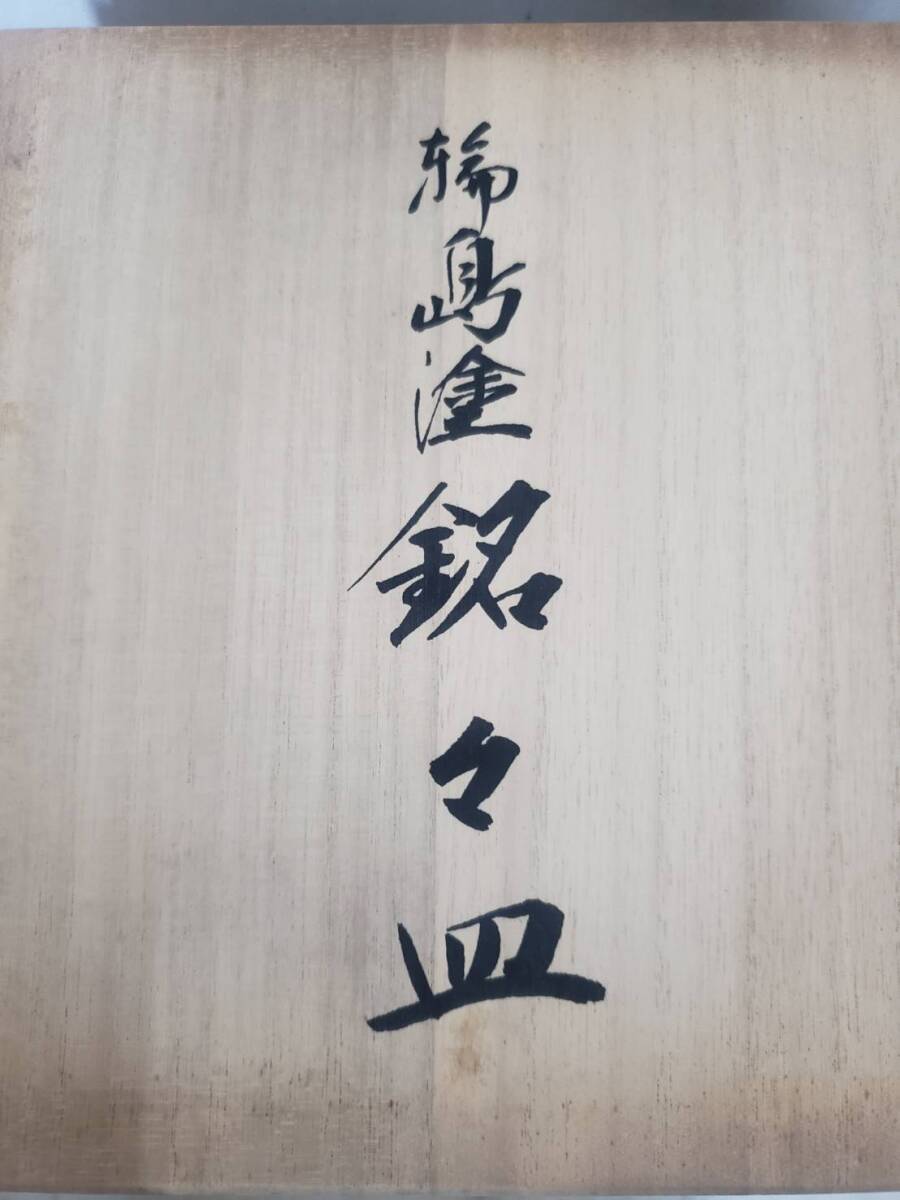 輪島塗銘々皿